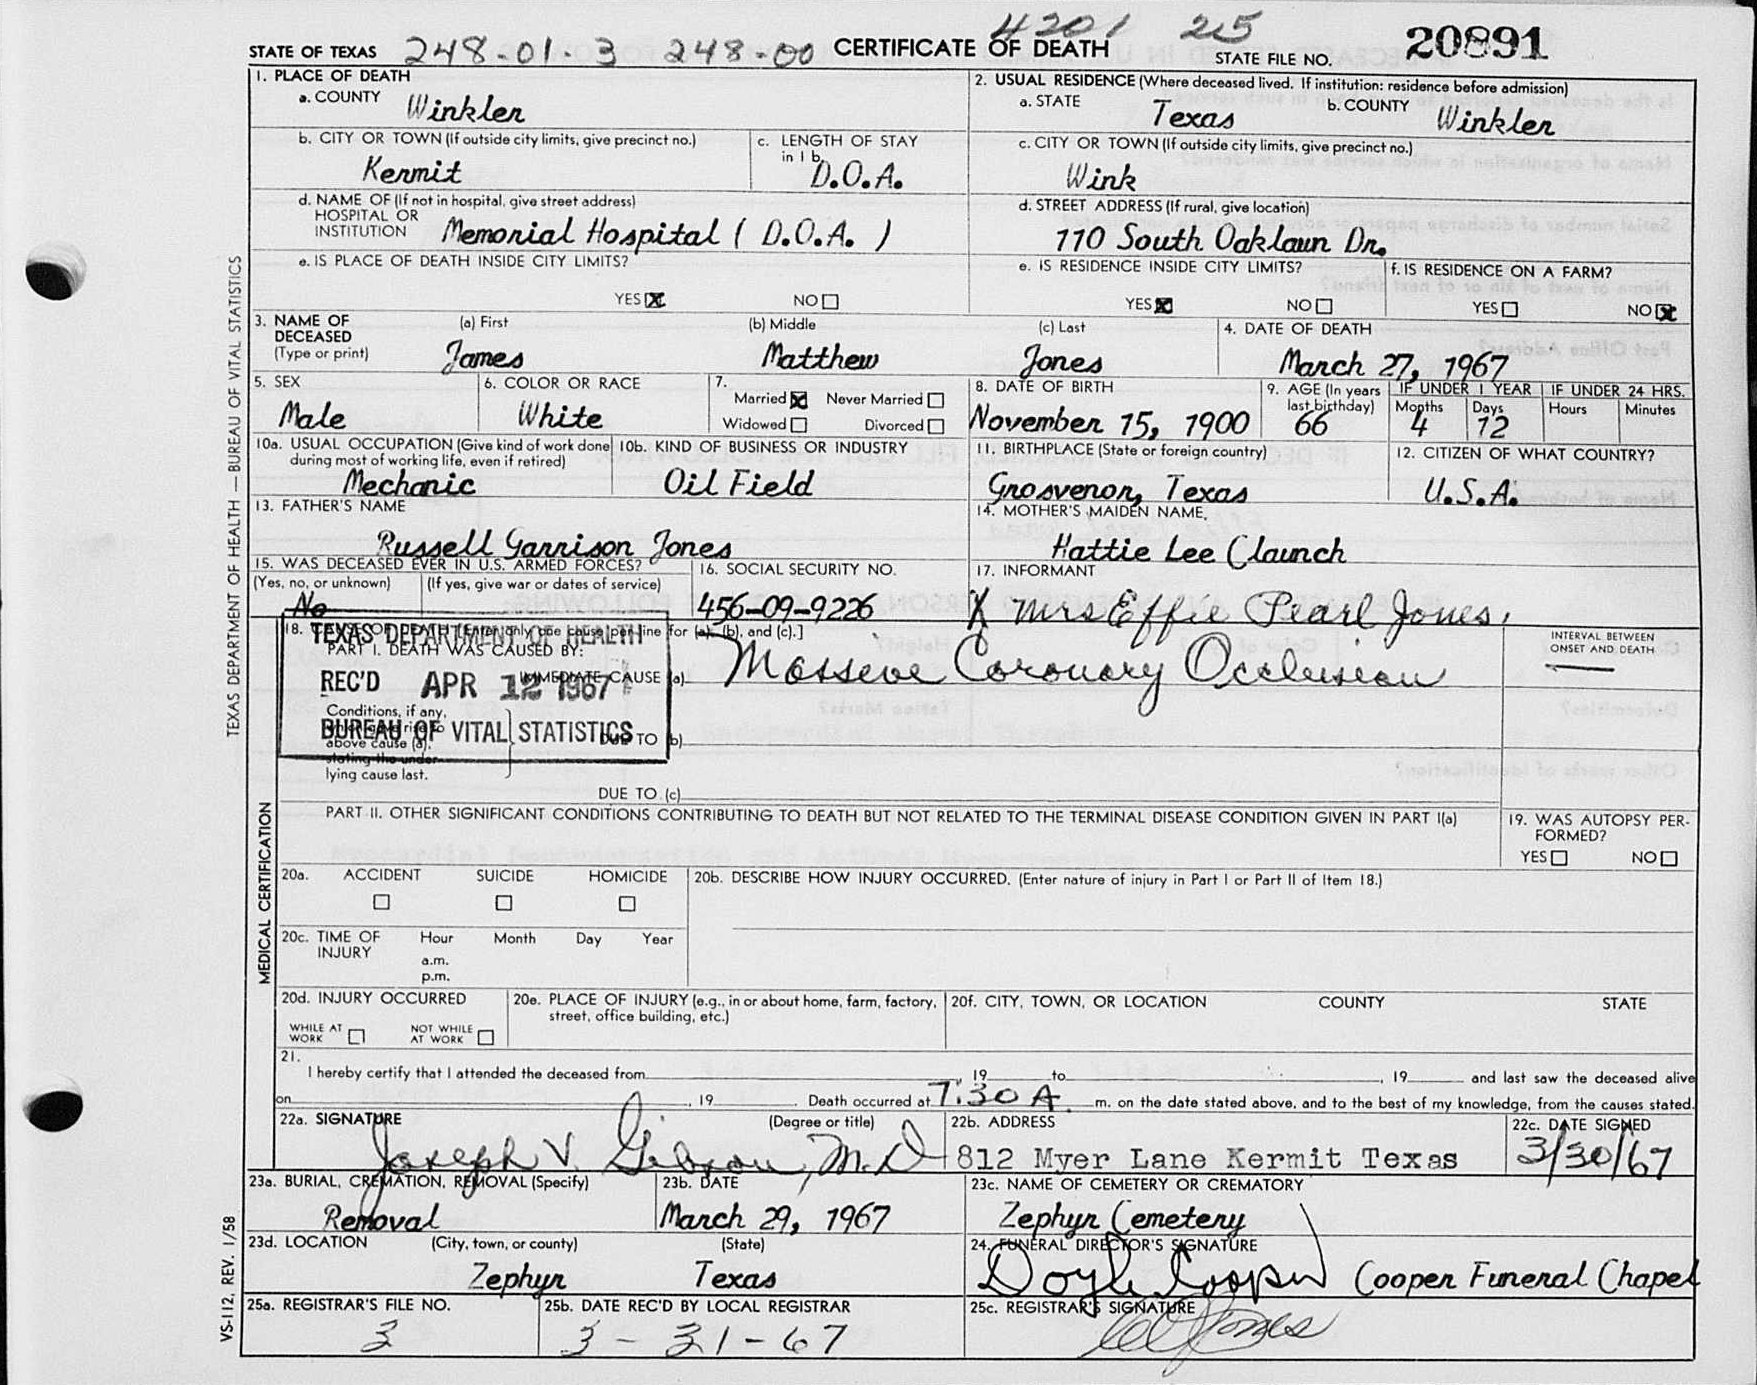 4201 25
STATE OF TEXAS 248-01-3 248-00 CERTIFICATE OF DEATH STATE FILE NO. 20891
1. PLACE OF DEATH
a. COUNTY Winkler
2. USUAL RESIDENCE (Where deceased lived. If institution: residence before admission)
a. STATE Texas b. COUNTY Winkler
b. CITY OR TOWN (If outside city limits, give precinct no.)
Kermit
c. LENGTH OF STAY
in 1 b.
D.O.A.
c. CITY OR TOWN (If outside city limits, give precinct no.)
Wink
d. NAME OF (If not in hospital, give street address)
HOSPITAL OR
INSTITUTION Memorial Hospital ( D.O.A. )
d. STREET ADDRESS (If rural, give location)
110 South Oaklawn Dr.
e. IS PLACE OF DEATH INSIDE CITY LIMITS?
YES NO
e. IS RESIDENCE INSIDE CITY LIMITS?
YES NO
f. IS RESIDENCE ON A FARM?
YES NO
3. NAME OF
DECEASED
(Type or print)
(a) First
James
(b) Middle
Matthew
(c) Last
Jones
4. DATE OF DEATH
March 27, 1967
5. SEX
Male
6. COLOR OR RACE
White
7.
Married Never Married
Widowed Divorced
8. DATE OF BIRTH
November 15, 1900
9. AGE (In years
last birthday)
66
IF UNDER 1 YEAR
Months Days
4 12
IF UNDER 24 HRS.
Hours Minutes
10a. USUAL OCCUPATION (Give kind of work done
during most of working life, even if retired)
Mechanic
10b. KIND OF BUSINESS OR INDUSTRY
Oil Field
11. BIRTHPLACE (State or foreign country)
Grosvenor, Texas
12. CITIZEN OF WHAT COUNTRY?
U.S.A.
13. FATHER'S NAME
Russell Garrison Jones
14. MOTHER'S MAIDEN NAME
Hattie Lee Claunch
15. WAS DECEASED EVER IN U.S. ARMED FORCES?
(Yes, no, or unknown) (If yes, give war or dates of service)
No
16. SOCIAL SECURITY NO.
456-09-9226
17. INFORMANT
X Mrs Effie Pearl Jones.
18. CAUSE OF DEATH [Enter only one cause per line for (a), (b), and (c).]
PART I. DEATH WAS CAUSED BY:
IMMEDIATE CAUSE (a) Masseve Coronary Occlusion
INTERVAL BETWEEN
ONSET AND DEATH
TEXAS DEPARTMENT OF HEALTH
REC'D APR 12 1967
BUREAU OF VITAL STATISTICS
Conditions, if any,
which gave rise to
above cause (a),
stating the under-
lying cause last.
DUE TO (b)
DUE TO (c)
PART II. OTHER SIGNIFICANT CONDITIONS CONTRIBUTING TO DEATH BUT NOT RELATED TO THE TERMINAL DISEASE CONDITION GIVEN IN PART I(a)
19. WAS AUTOPSY PER-
FORMED?
YES NO
20a. ACCIDENT SUICIDE HOMICIDE
20b. DESCRIBE HOW INJURY OCCURRED. (Enter nature of injury in Part I or Part II of Item 18.)
20c. TIME OF
INJURY
Hour Month Day Year
a.m.
p.m.
20d. INJURY OCCURRED
WHILE AT
WORK
NOT WHILE
AT WORK
20e. PLACE OF INJURY (e.g., in or about home, farm, factory,
street, office building, etc.)
20f. CITY, TOWN, OR LOCATION COUNTY STATE
21.
I hereby certify that I attended the deceased from , 19 to , 19 and last saw the deceased alive
on , 19 . Death occurred at 7:30 A. m. on the date stated above, and to the best of my knowledge, from the causes stated.
22a. SIGNATURE (Degree or title)
Joseph V. Gibson, M.D
22b. ADDRESS
812 Myer Lane Kermit Texas
22c. DATE SIGNED
3/30/67
23a. BURIAL, CREMATION, REMOVAL (Specify)
Removal
23b. DATE
March 29, 1967
23c. NAME OF CEMETERY OR CREMATORY
Zephyr Cemetery
23d. LOCATION (City, town, or county) (State)
Zephyr Texas
24. FUNERAL DIRECTOR'S SIGNATURE
Doyle Cooper Cooper Funeral Chapel
25a. REGISTRAR'S FILE NO.
3
25b. DATE REC'D BY LOCAL REGISTRAR
3-31-67
25c. REGISTRAR'S SIGNATURE
Jones
TEXAS DEPARTMENT OF HEALTH — BUREAU OF VITAL STATISTICS
MEDICAL CERTIFICATION
VS-112, REV. 1/58